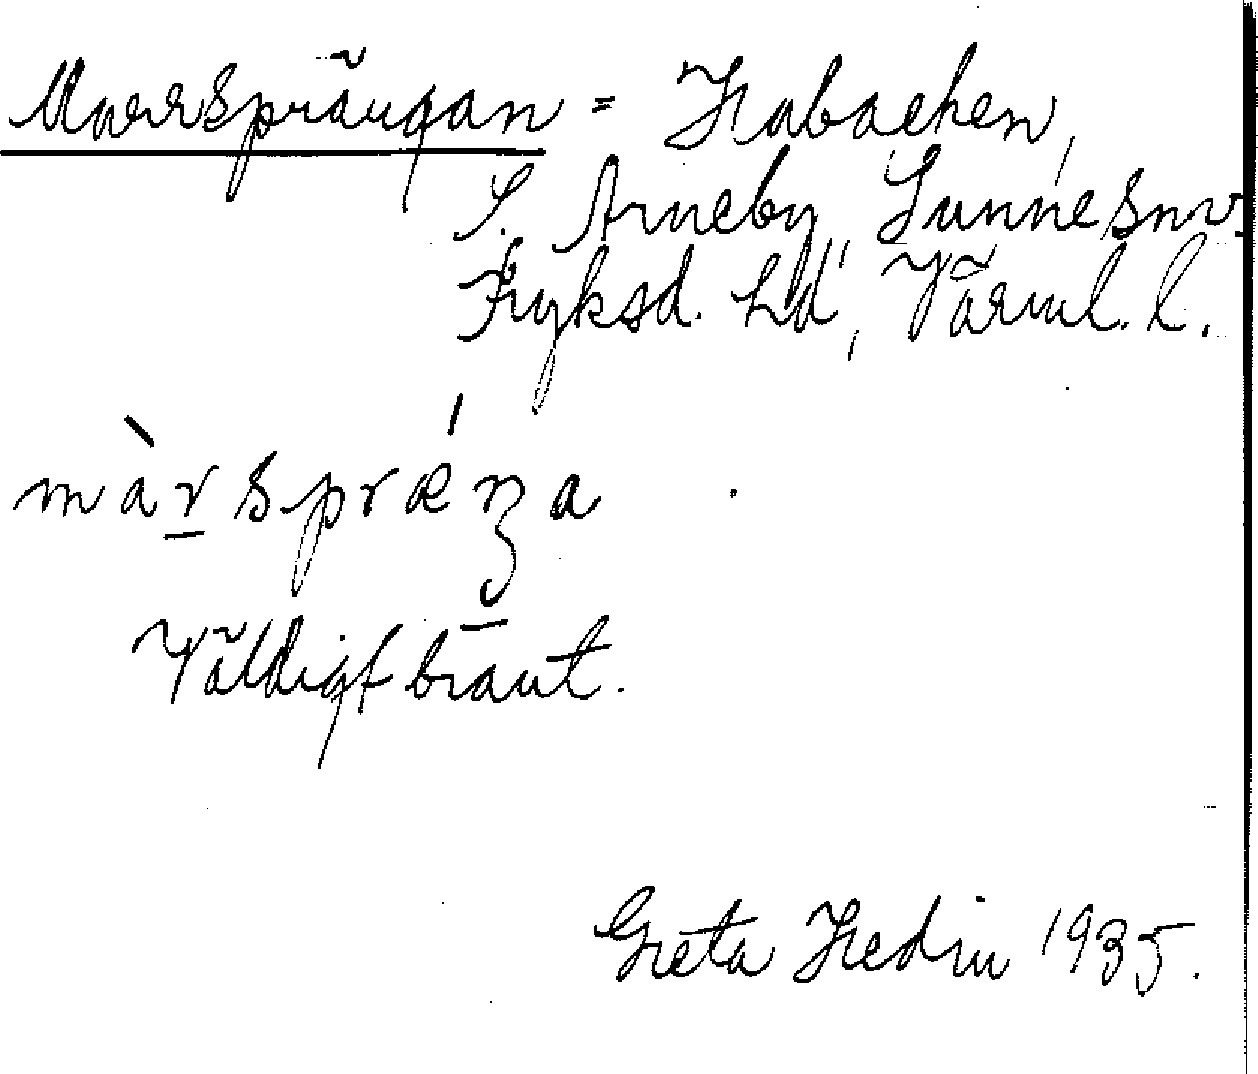 Marrsprängan = Habacken,
S. Arneby, Sunne snv.
Fryksd. hd, Värml. l.
màr̠spræ´ŋa
Väldigt brant.
Greta Hedin 1935.